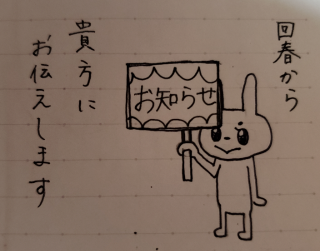 回春から
お知らせ
貴方に
お伝えします